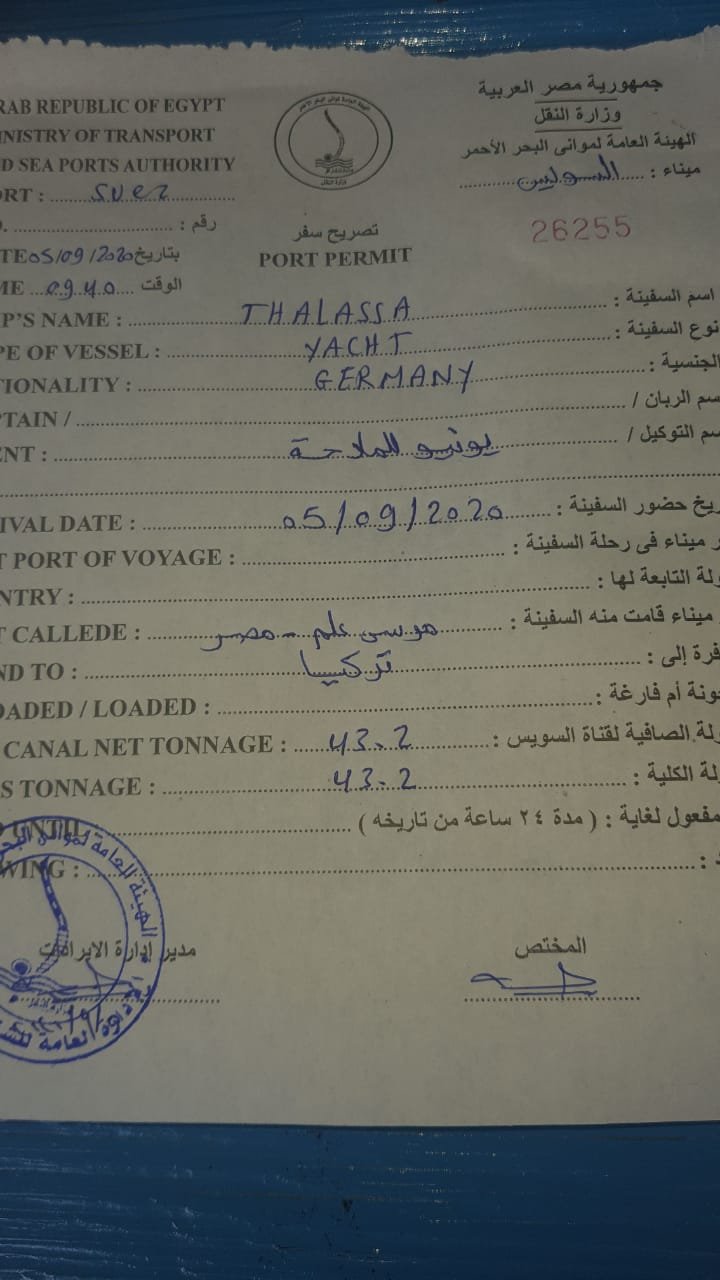 RAB REPUBLIC OF EGYPT
NISTRY OF TRANSPORT
D SEA PORTS AUTHORITY
ORT : Suez
جمهورية مصر العربية
وزارة النقل
الهيئة العامة لموانى البحر الأحمر
ميناء : السويس
رقم :
26255
تصريح سفر
PORT PERMIT
TE 05/09/2020 بتاريخ
ME 09.40 الوقت
P'S NAME : THALASSA اسم السفينة :
PE OF VESSEL : YACHT نوع السفينة :
TIONALITY : GERMANY الجنسية :
PTAIN / سم الربان /
ENT : يونيو للملاحة سم التوكيل /
IVAL DATE : 05/09/2020 ريخ حضور السفينة :
T PORT OF VOYAGE : ر ميناء فى رحلة السفينة :
NTRY : ولة التابعة لها :
T CALLEDE : مرسى علم - مصر ميناء قامت منه السفينة :
ND TO : تركيا فرة إلى :
OADED / LOADED : حونة أم فارغة :
CANAL NET TONNAGE : 43.2 ولة الصافية لقناة السويس :
S TONNAGE : 43.2 ولة الكلية :
UNTIL مفعول لغاية : ( مدة ٢٤ ساعة من تاريخه )
WING : د :
مدير إدارة الايرادات
المختص
الهيئة العامة لموانى البحر